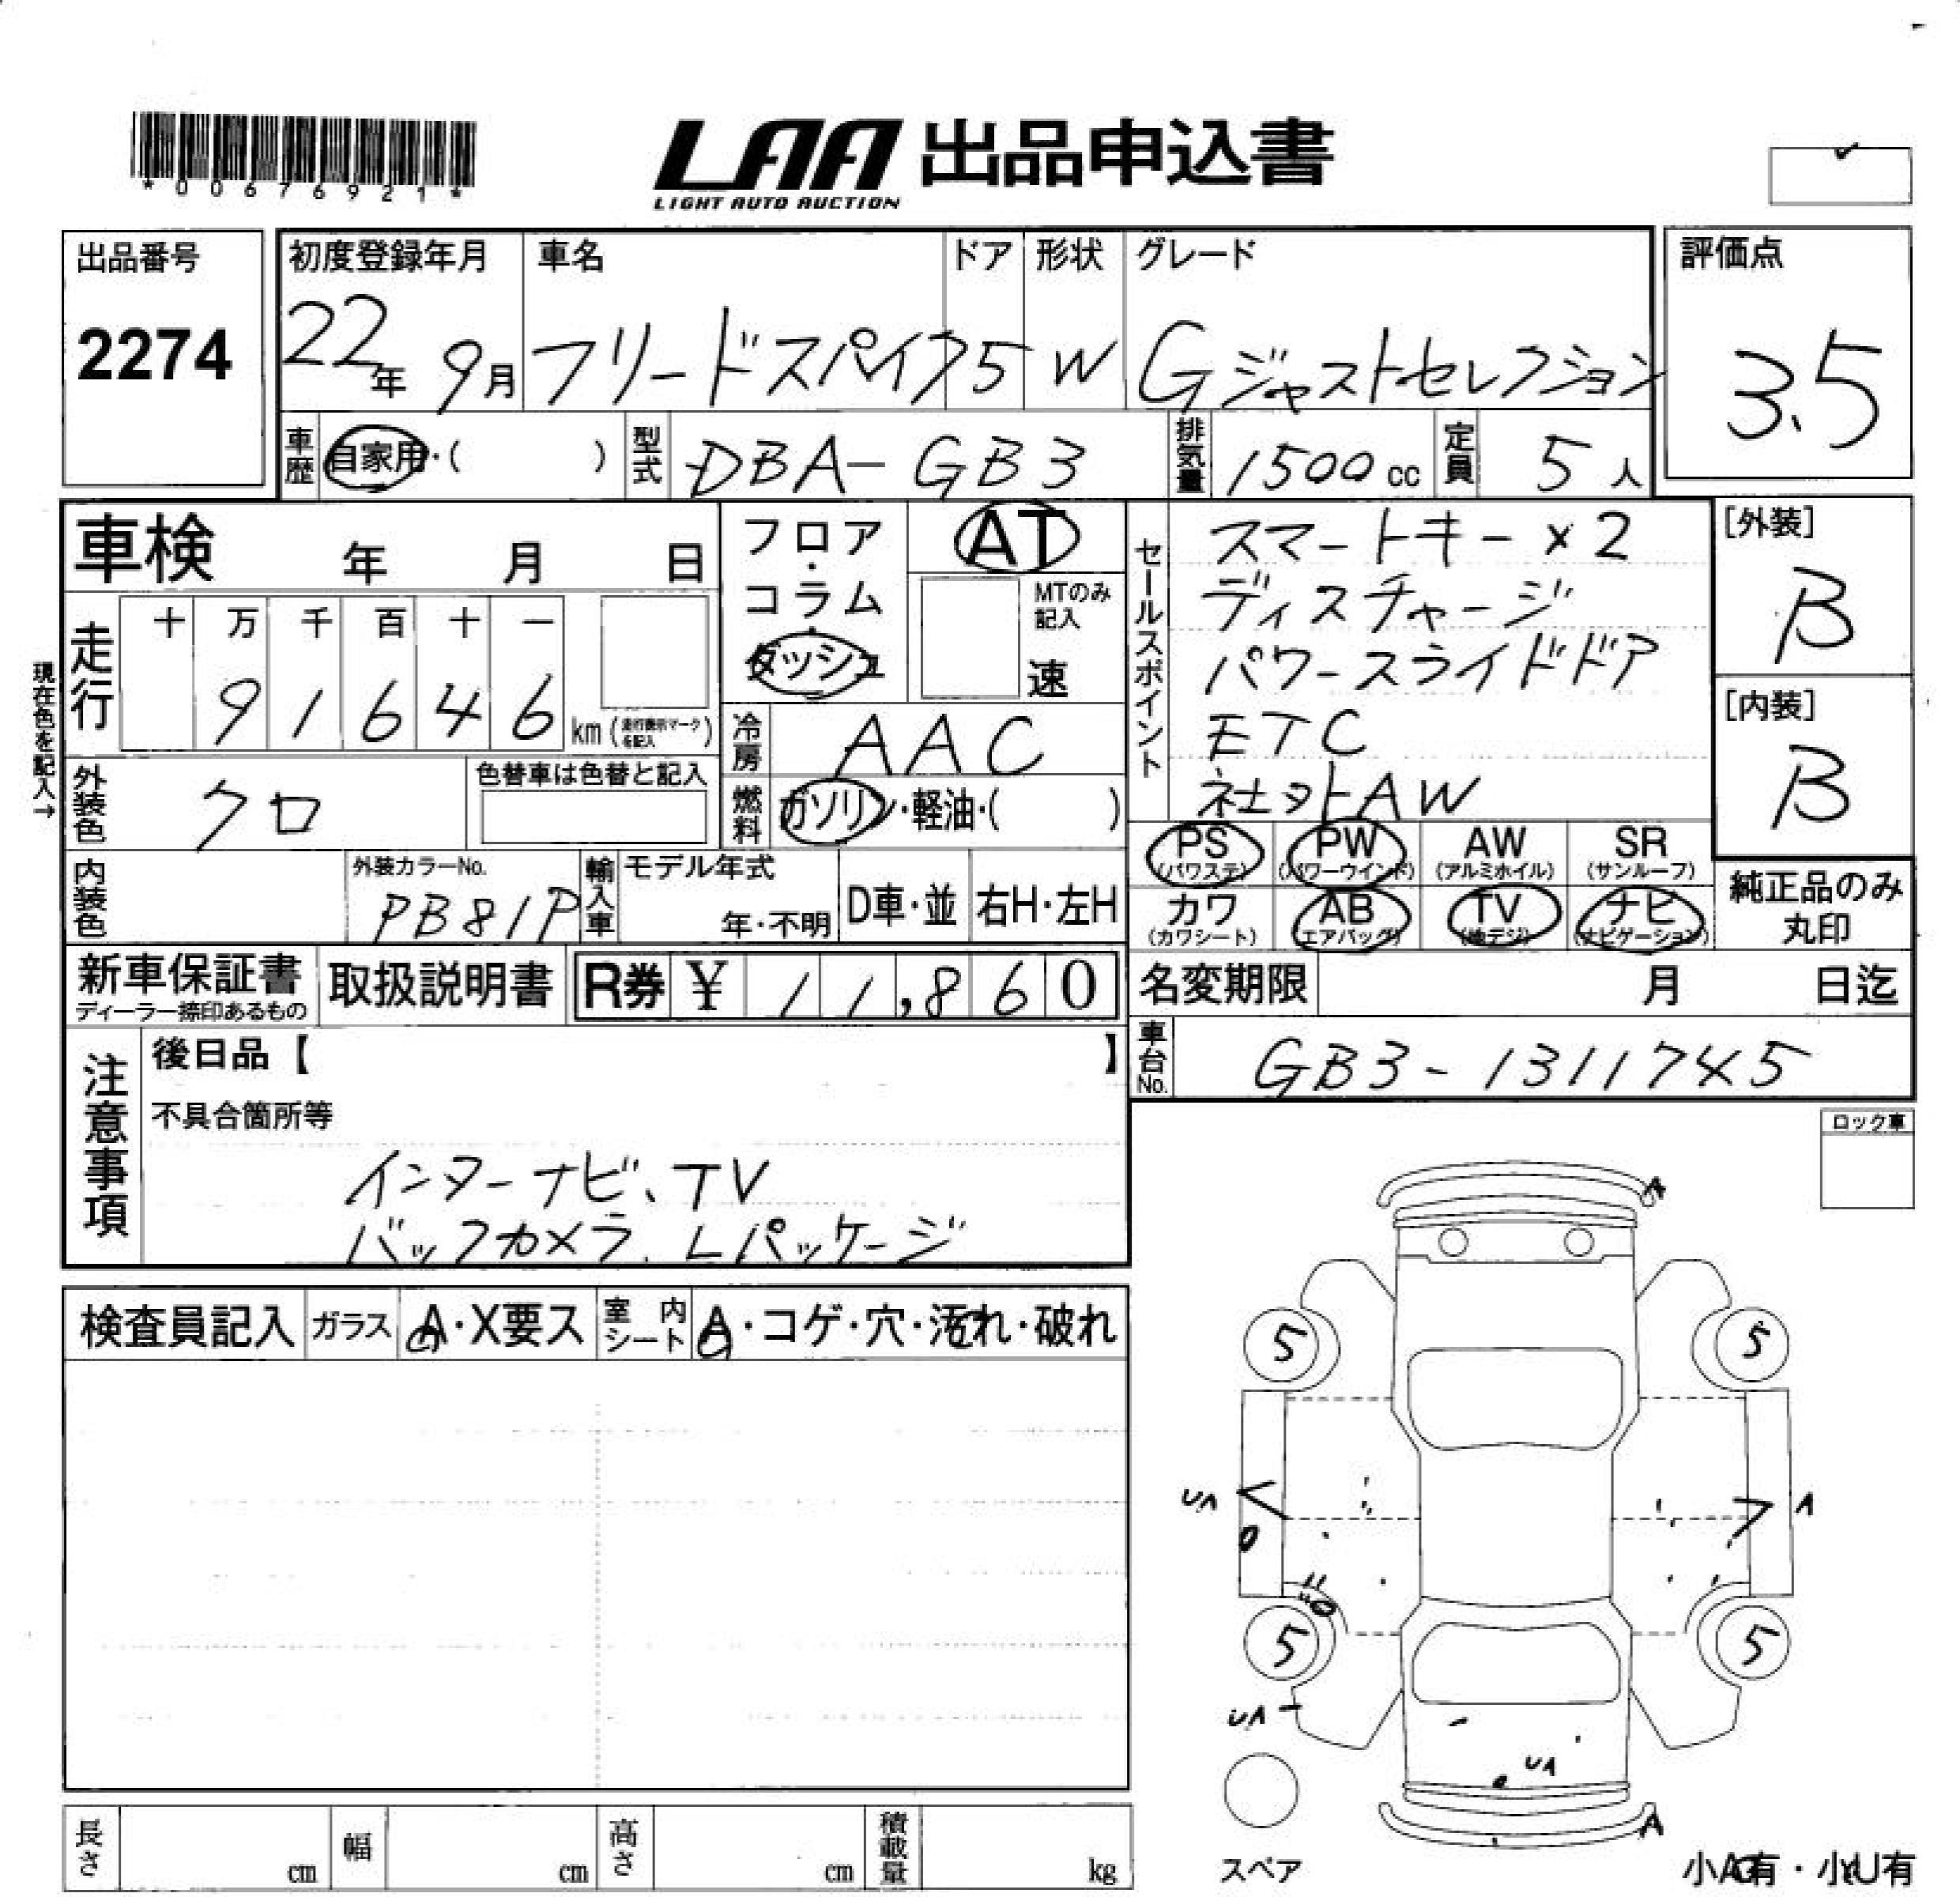 *00676921*
LAA 出品申込書
LIGHT AUTO AUCTION
出品番号
2274
初度登録年月
22年 9月
車名
フリードスパイク
ドア
5
形状
W
グレード
Gジャストセレクション
評価点
3.5
車歴
自家用・( )
型式
DBA-GB3
排気量
1500cc
定員
5人
車検 年 月 日
フロア・コラム・ダッシュ
AT
MTのみ記入
速
セールスポイント
スマートキー×2
ディスチャージ
パワースライドドア
ETC
社外AW
[外装]
B
[内装]
B
現在色を記入→
走行
十 万 千 百 十 一
9 1 6 4 6 km (走行表示マークを記入)
冷房
AAC
外装色
クロ
色替車は色替と記入
燃料
ガソリン・軽油・( )
PS (パワステ)
PW (パワーウインド)
AW (アルミホイル)
SR (サンルーフ)
カワ (カワシート)
AB (エアバッグ)
TV (地デジ)
ナビ (ナビゲーション)
純正品のみ丸印
内装色
外装カラーNo.
PB81P
輸入車
モデル年式
年・不明
D車・並
右H・左H
新車保証書
ディーラー捺印あるもの
取扱説明書
R券 ¥ 11,860
名変期限 月 日迄
車台No.
GB3-1311745
注意事項
後日品【 】
不具合箇所等
インターナビ、TV
バックカメラ、Lパッケージ
ロック車
検査員記入
ガラス
A・X要ス
室内シート
A・コゲ・穴・汚れ・破れ
A
5 5
UA A
5 5
UA
UA
A
スペア
小A有・小U有
長さ cm
幅 cm
高さ cm
積載量 kg